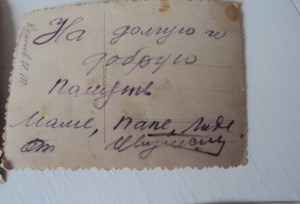 На долгую и
добрую
память
Маме, папе, Лиде
от